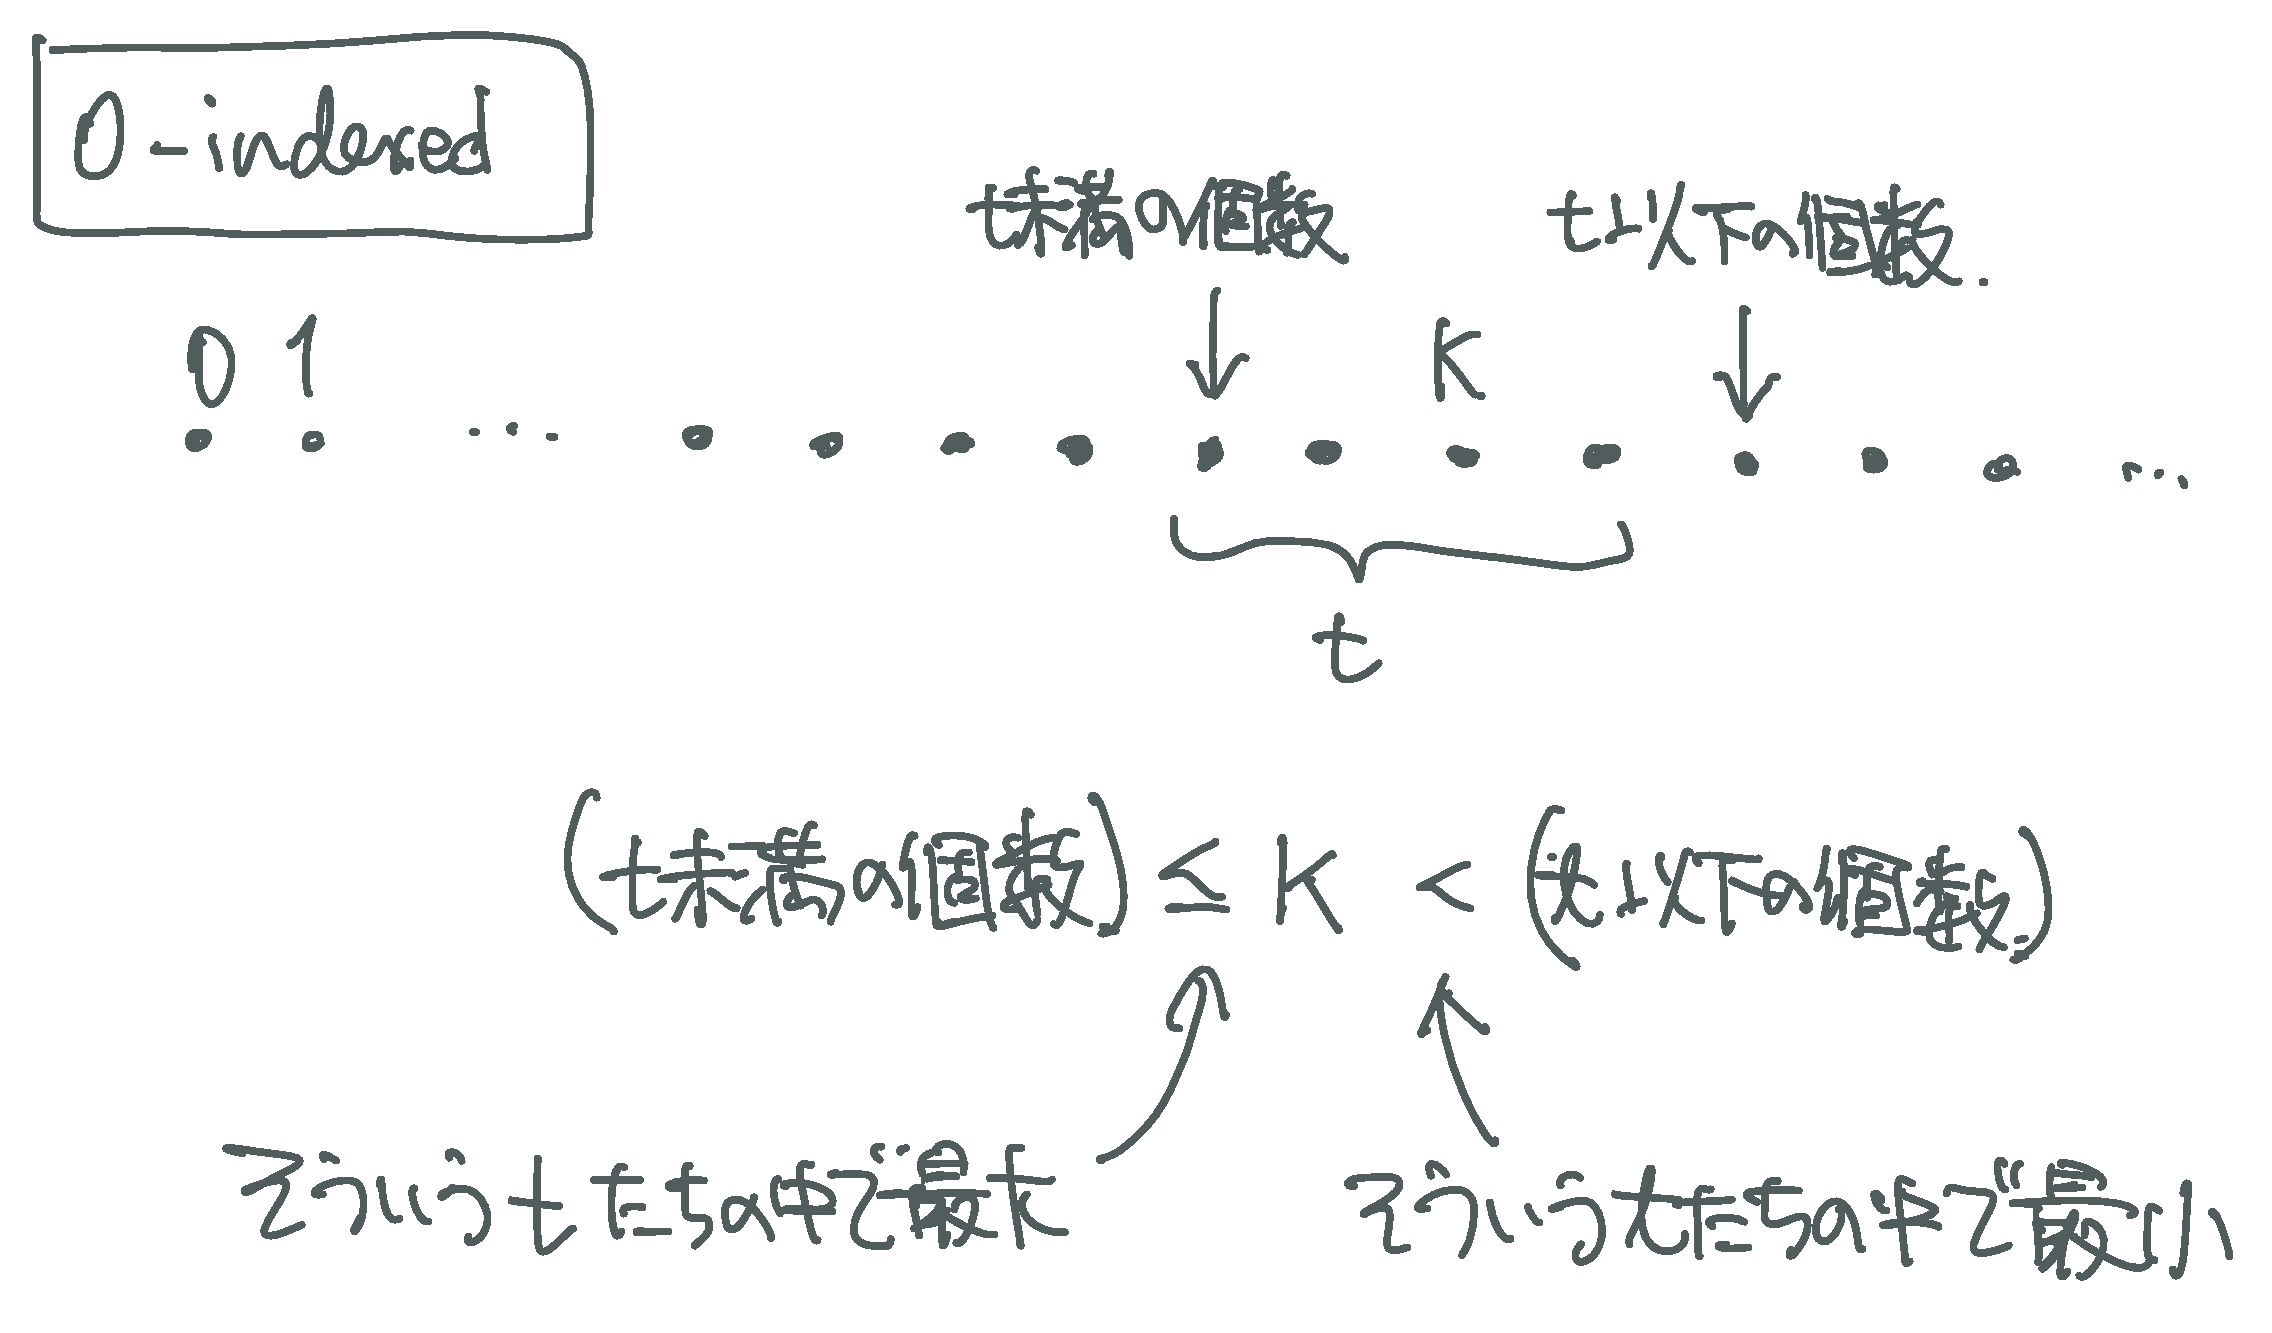 0-indexed
t未満の個数 t以下の個数.
0 1 K
...
t
(t未満の個数) ≤ K < (t以下の個数)
そういうtたちの中で最大 そういうtたちの中で最小